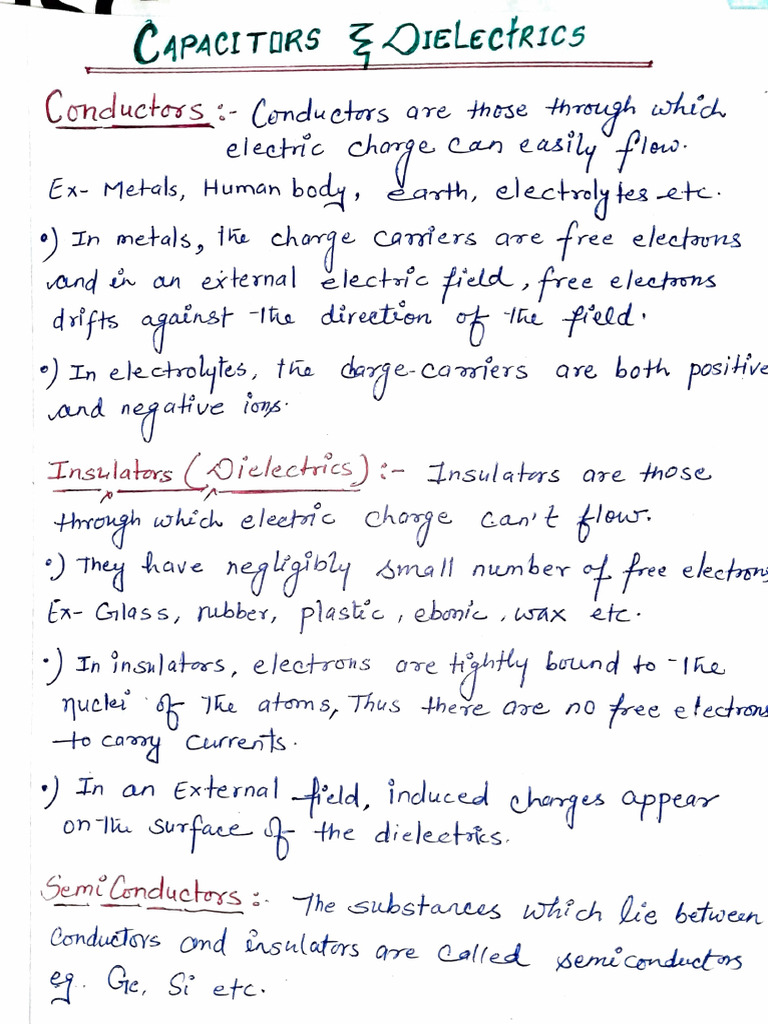 CAPACITORS & DIELECTRICS
Conductors :- Conductors are those through which
electric charge can easily flow.
Ex- Metals, Human body, earth, electrolytes etc.
•) In metals, the charge carriers are free electrons
and in an external electric field, free electrons
drifts against the direction of the field.
•) In electrolytes, the charge-carriers are both positive
and negative ions.
Insulators (Dielectrics) :- Insulators are those
through which electric charge can't flow.
•) They have negligibly small number of free electrons
Ex- Glass, rubber, plastic, ebonic, wax etc.
•) In insulators, electrons are tightly bound to the
nuclei of the atoms, Thus there are no free electrons
to carry currents.
•) In an External field, induced charges appear
on the surface of the dielectrics.
SemiConductors :- The substances which lie between
Conductors and insulators are called semiconductors
eg. Ge, Si etc.